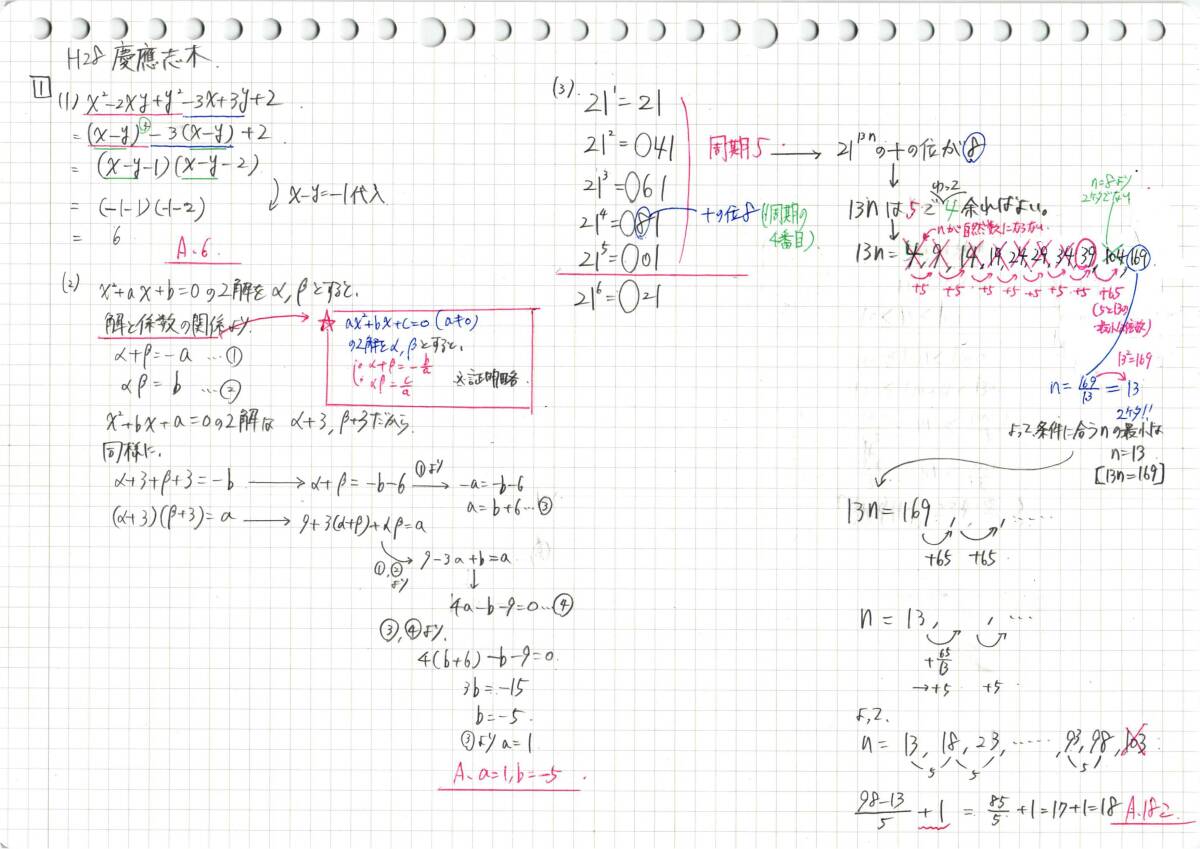 H28 慶應志木.
1
(1) x²-2xy+y²-3x+3y+2
= (x-y)²-3(x-y)+2
= (x-y-1)(x-y-2)
x-y=-1代入
= (-1-1)(-1-2)
= 6
A. 6
(2) x²+ax+b=0の2解をα, βとすると、
解と係数の関係より
α+β=-a …①
αβ=b …②
☆ ax²+bx+c=0 (a≠0)
の2解をα, βとすると、
α+β=-b/a
αβ=c/a
※証明略.
x²+bx+a=0の2解は α+3, β+3だから
同様に、
α+3+β+3=-b → α+β=-b-6 ①より → -a=-b-6
a=b+6…③
(α+3)(β+3)=a → 9+3(α+β)+αβ=a
①,②より → 9-3a+b=a
↓
4a-b-9=0…④
③,④より、
4(b+6)-b-9=0
3b=-15
b=-5.
③より a=1
A. a=1, b=-5
(3).
21¹=21
21²=○41
21³=○61
21⁴=○81
十の位8 (周期の
4番目)
21⁵=○01
21⁶=○21
周期5 → 21¹³ⁿの十の位が8
↓ ゆえに
13nは5で4余ればよい。
nが自然数にならない
n=8より
2ケタでない
13n=4, 9, 14, 19, 24, 29, 34, 39, 104, 169
+5 +5 +5 +5 +5 +5 +5 +65
(5と13の
最小公倍数)
13²=169
n=169/13=13
2ケタ!!
よって条件に合うnの最小は
n=13
[13n=169]
13n=169, , ……
+65 +65
n=13, , …
+65/13
→+5 +5
よって.
n=13, 18, 23, ……, 93, 98, 103
5 5 5
(98-13)/5 +1 = 85/5 +1=17+1=18 A.18コ